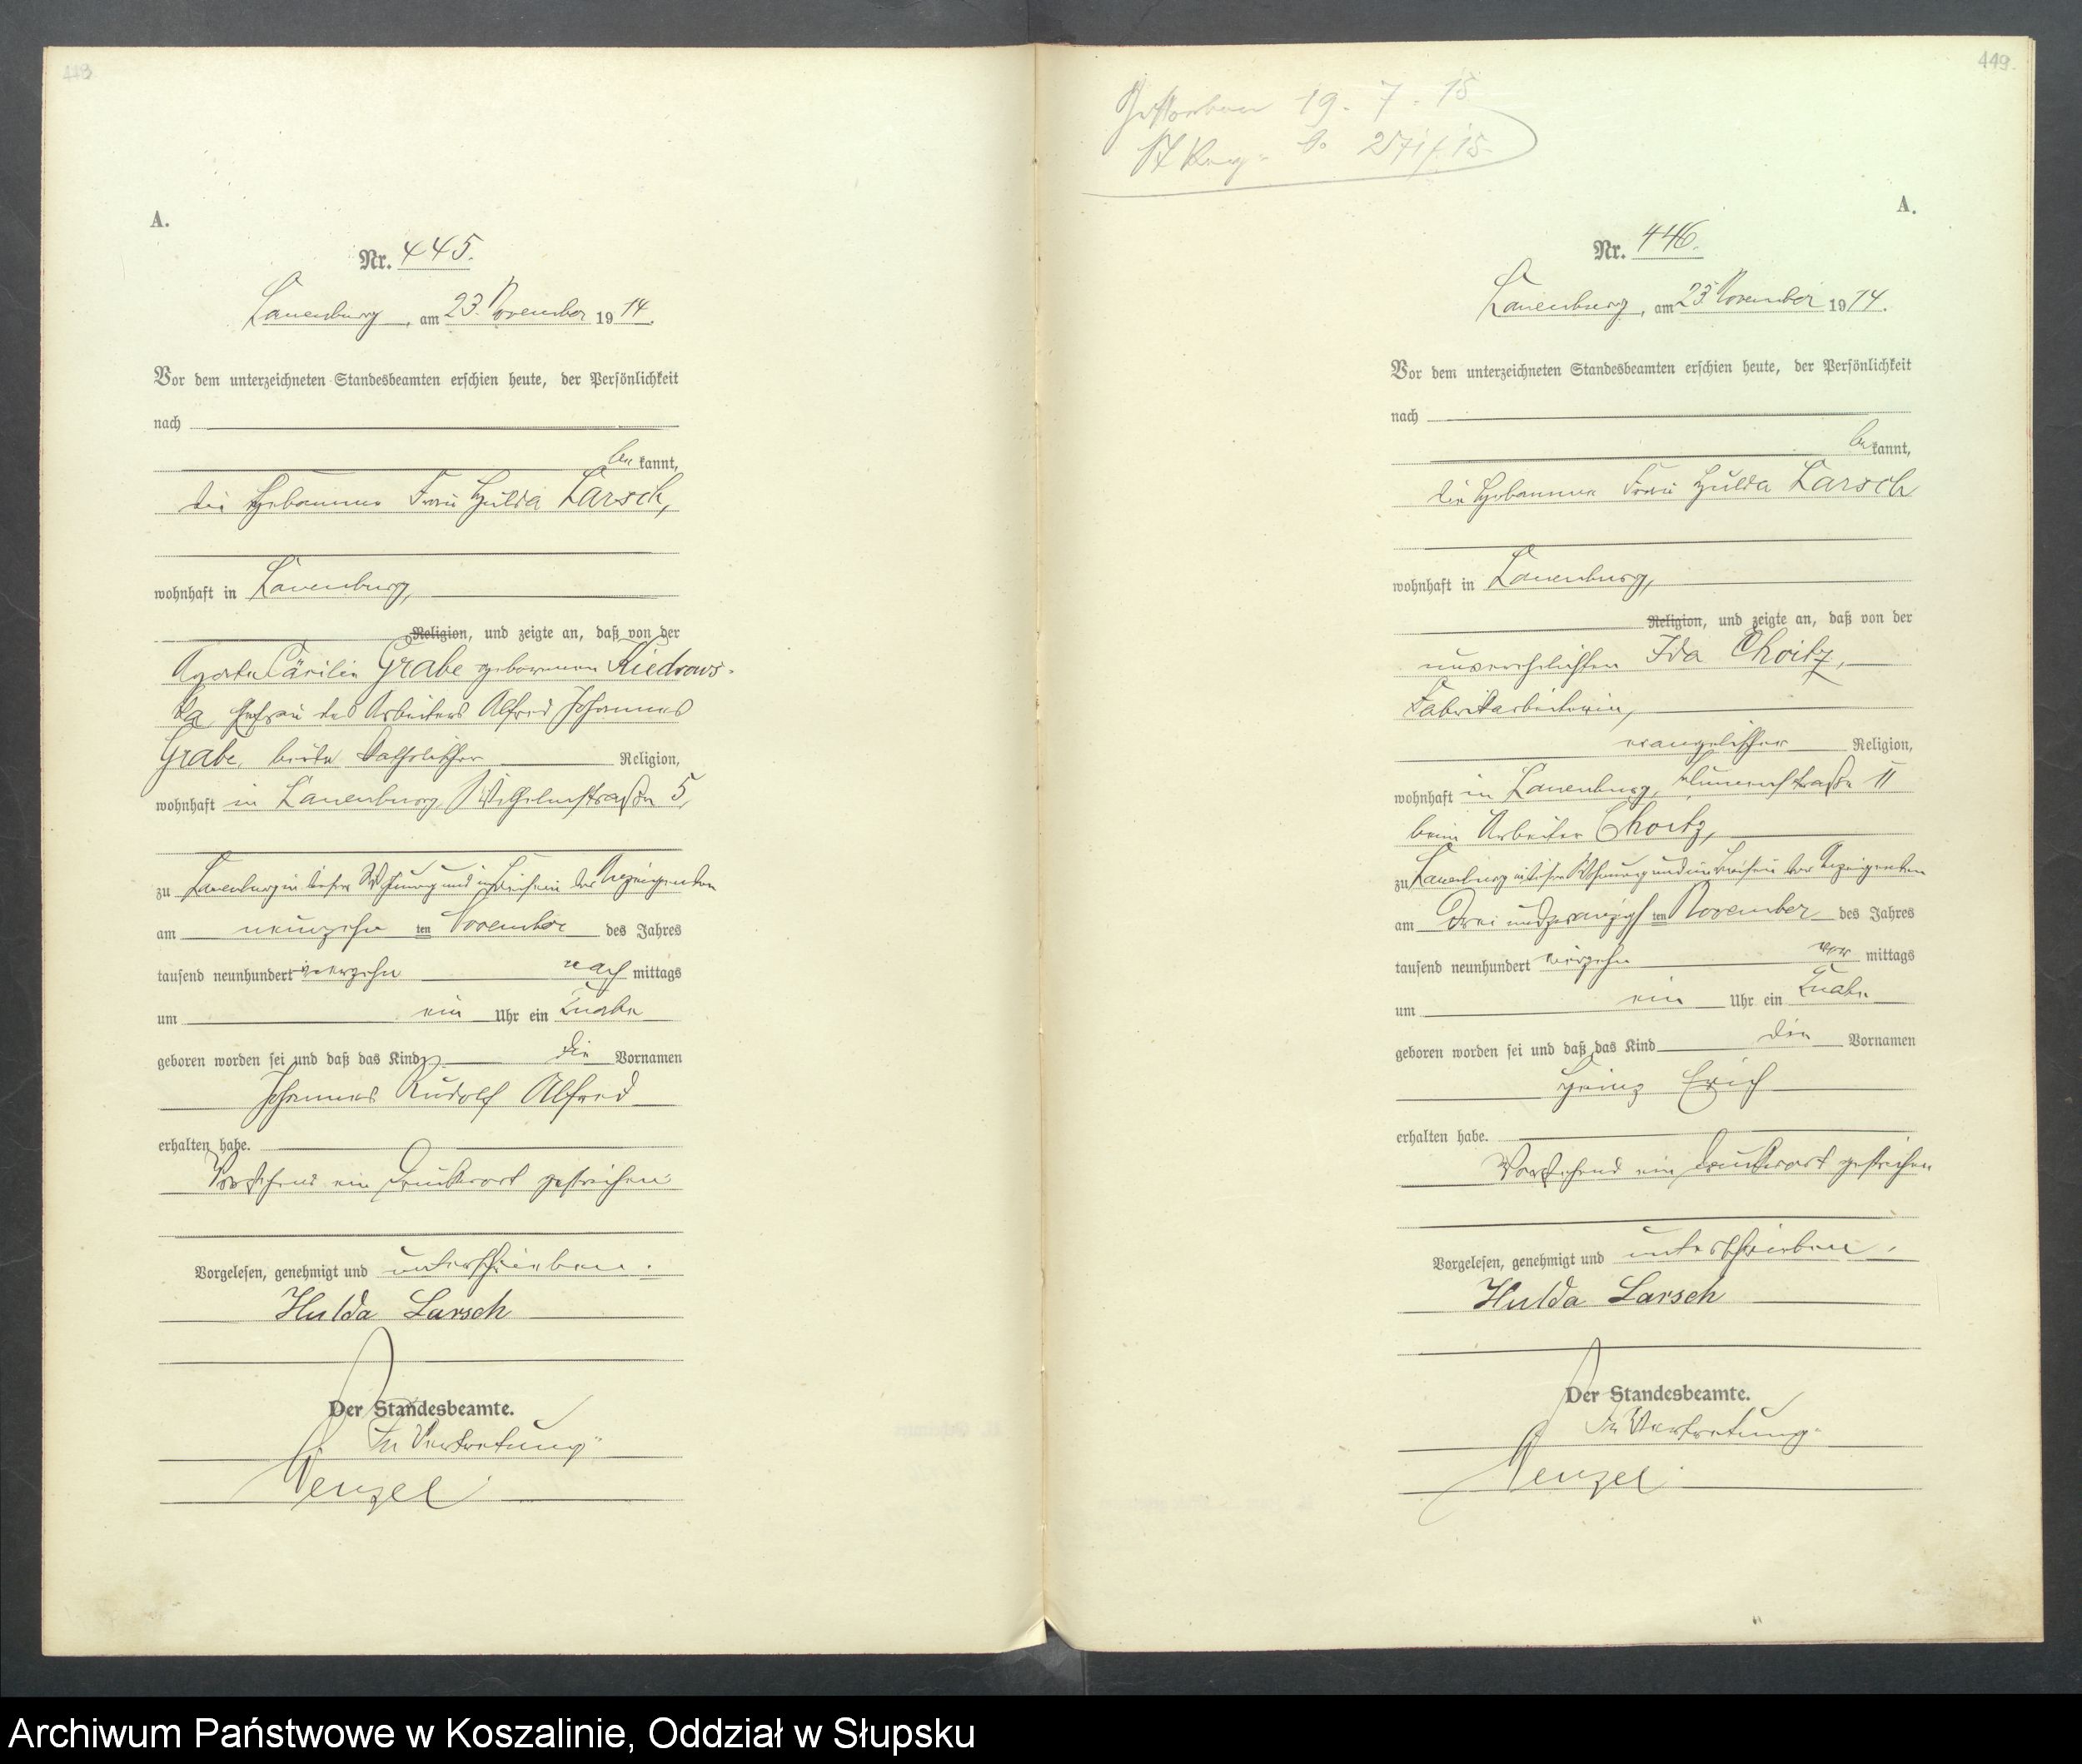 448
A.
Nr. 445.
Lauenburg, am 23. November 1914.
Vor dem unterzeichneten Standesbeamten erschien heute, der Persönlichkeit
nach
be kannt,
die Hebamme Frau Hulda Larsch,
wohnhaft in Lauenburg,
Religion, und zeigte an, daß von der
Cäcilie Grabe geborenen Kiedrows-
ka, Ehefrau des Arbeiters Alfred Johannes
Grabe, beide katholischer Religion,
wohnhaft in Lauenburg, Wilhelmstraße 5,
zu Lauenburg in dieser Wohnung und in Beisein der Anzeigenden
am neunzehn ten November des Jahres
tausend neunhundert vierzehn nach mittags
um ein Uhr ein Knabe
geboren worden sei und daß das Kind die Vornamen
Johannes Rudolf Alfred
erhalten habe.
Vorstehend ein Druckwort gestrichen
Vorgelesen, genehmigt und unterschrieben.
Hulda Larsch
Der Standesbeamte.
In Vertretung
Wenzel
449.
Gestorben 19. 7. 15
A.
Nr. 446.
Lauenburg, am 23. November 1914.
Vor dem unterzeichneten Standesbeamten erschien heute, der Persönlichkeit
nach
be kannt,
die Hebamme Frau Hulda Larsch
wohnhaft in Lauenburg,
Religion, und zeigte an, daß von der
unverehelichten Ida Choitz,
Fabrikarbeiterin,
evangelischer Religion,
wohnhaft in Lauenburg, Blumenstraße 11
beim Arbeiter Choitz,
zu Lauenburg in dieser Wohnung und in Beisein der Anzeigenden
am drei und zwanzigs ten November des Jahres
tausend neunhundert vierzehn vor mittags
um ein Uhr ein Knabe
geboren worden sei und daß das Kind die Vornamen
Heinz Erich
erhalten habe.
Vorstehend ein Druckwort gestrichen
Vorgelesen, genehmigt und unterschrieben.
Hulda Larsch
Der Standesbeamte.
In Vertretung
Wenzel
Archiwum Państwowe w Koszalinie, Oddział w Słupsku